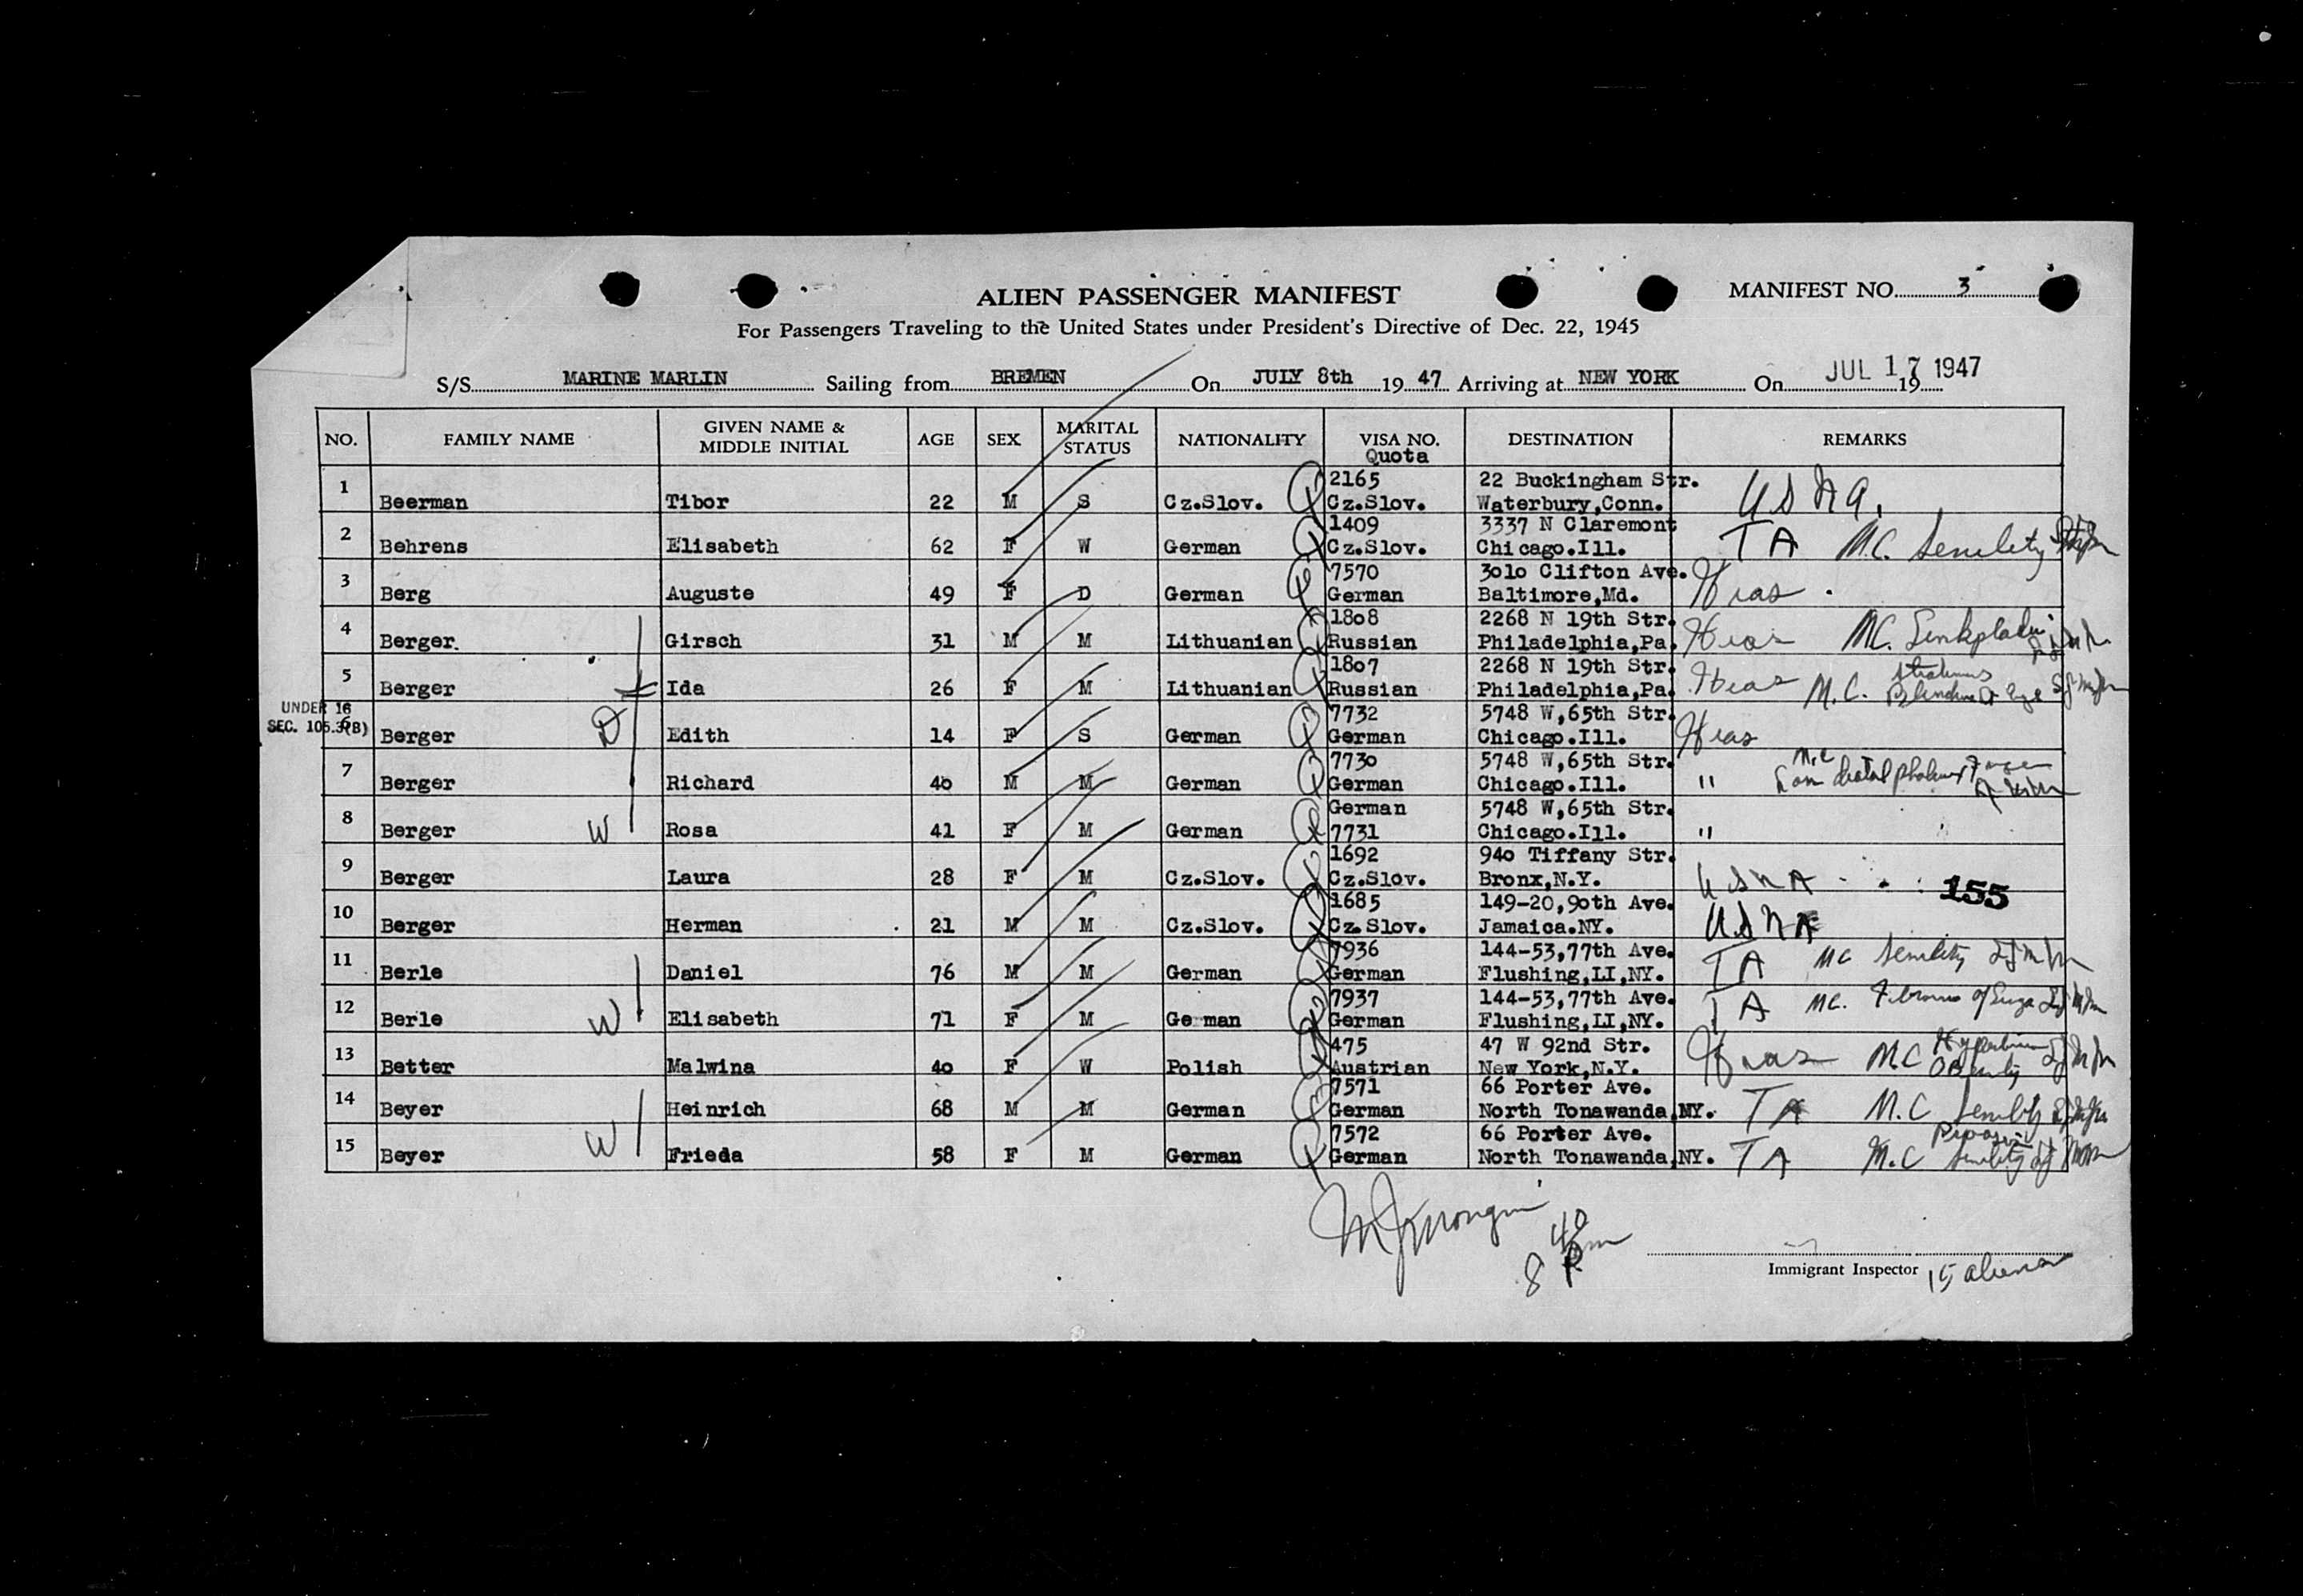 ALIEN PASSENGER MANIFEST
MANIFEST NO. 3
For Passengers Traveling to the United States under President's Directive of Dec. 22, 1945
S/S MARINE MARLIN Sailing from BREMEN On JULY 8th 19 47 Arriving at NEW YORK On JUL 17 1947 19
NO. FAMILY NAME GIVEN NAME & MIDDLE INITIAL AGE SEX MARITAL STATUS NATIONALITY VISA NO. Quota DESTINATION REMARKS
1 Beerman Tibor 22 M S Cz.Slov. 2165 Cz.Slov. 22 Buckingham Str. Waterbury,Conn. USNA.
2 Behrens Elisabeth 62 F W German 1409 Cz.Slov. 3337 N Claremont Chicago.Ill. TA M.C. Senility
3 Berg Auguste 49 F D German 7570 German 3olo Clifton Ave. Baltimore,Md. Hias.
4 Berger. Girsch 31 M M Lithuanian 18o8 Russian 2268 N 19th Str. Philadelphia,Pa. Hias MC.
5 Berger Ida 26 F M Lithuanian 18o7 Russian 2268 N 19th Str. Philadelphia,Pa. Hias M.C.
UNDER 16
SEC. 105.3(B)
6 Berger D Edith 14 F S German 7732 German 5748 W,65th Str. Chicago.Ill. Hias
7 Berger Richard 4o M M German 773o German 5748 W,65th Str. Chicago.Ill. " M.C
8 Berger W Rosa 41 F M German German 7731 5748 W,65th Str. Chicago.Ill. "
9 Berger Laura 28 F M Cz.Slov. 1692 Cz.Slov. 94o Tiffany Str. Bronx,N.Y. USNA 155
10 Berger Herman 21 M M Cz.Slov. 1685 Cz.Slov. 149-20,9oth Ave. Jamaica.NY. USNA
11 Berle Daniel 76 M M German 7936 German 144-53,77th Ave. Flushing,LI,NY. TA MC Senility
12 Berle W Elisabeth 71 F M Ge man 7937 German 144-53,77th Ave. Flushing,LI,NY. TA MC.
13 Better Malwina 4o F W Polish 475 Austrian 47 W 92nd Str. New York,N.Y. Hias MC Obesity
14 Beyer Heinrich 68 M M German 7571 German 66 Porter Ave. North Tonawanda,NY. TA M.C Senility
15 Beyer W Frieda 58 F M German 7572 German 66 Porter Ave. North Tonawanda,NY. TA M.C Senility
8 40 Pm
Immigrant Inspector 15 aliens